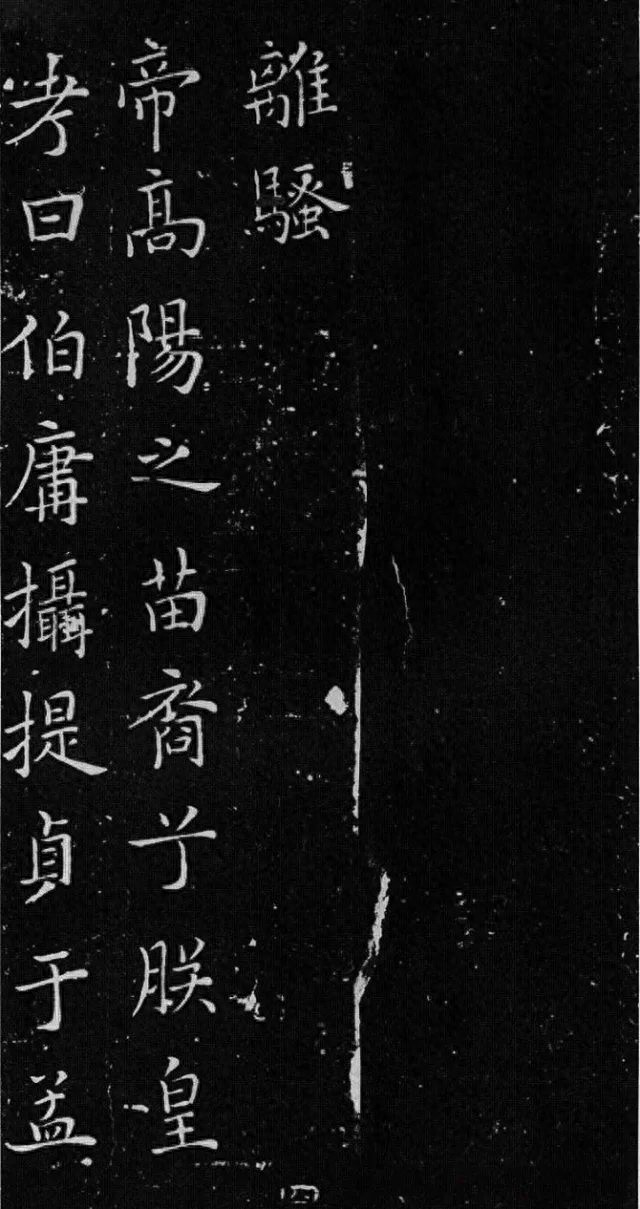 離騷
帝髙陽之苗裔兮朕皇
考曰伯庸攝提貞于孟